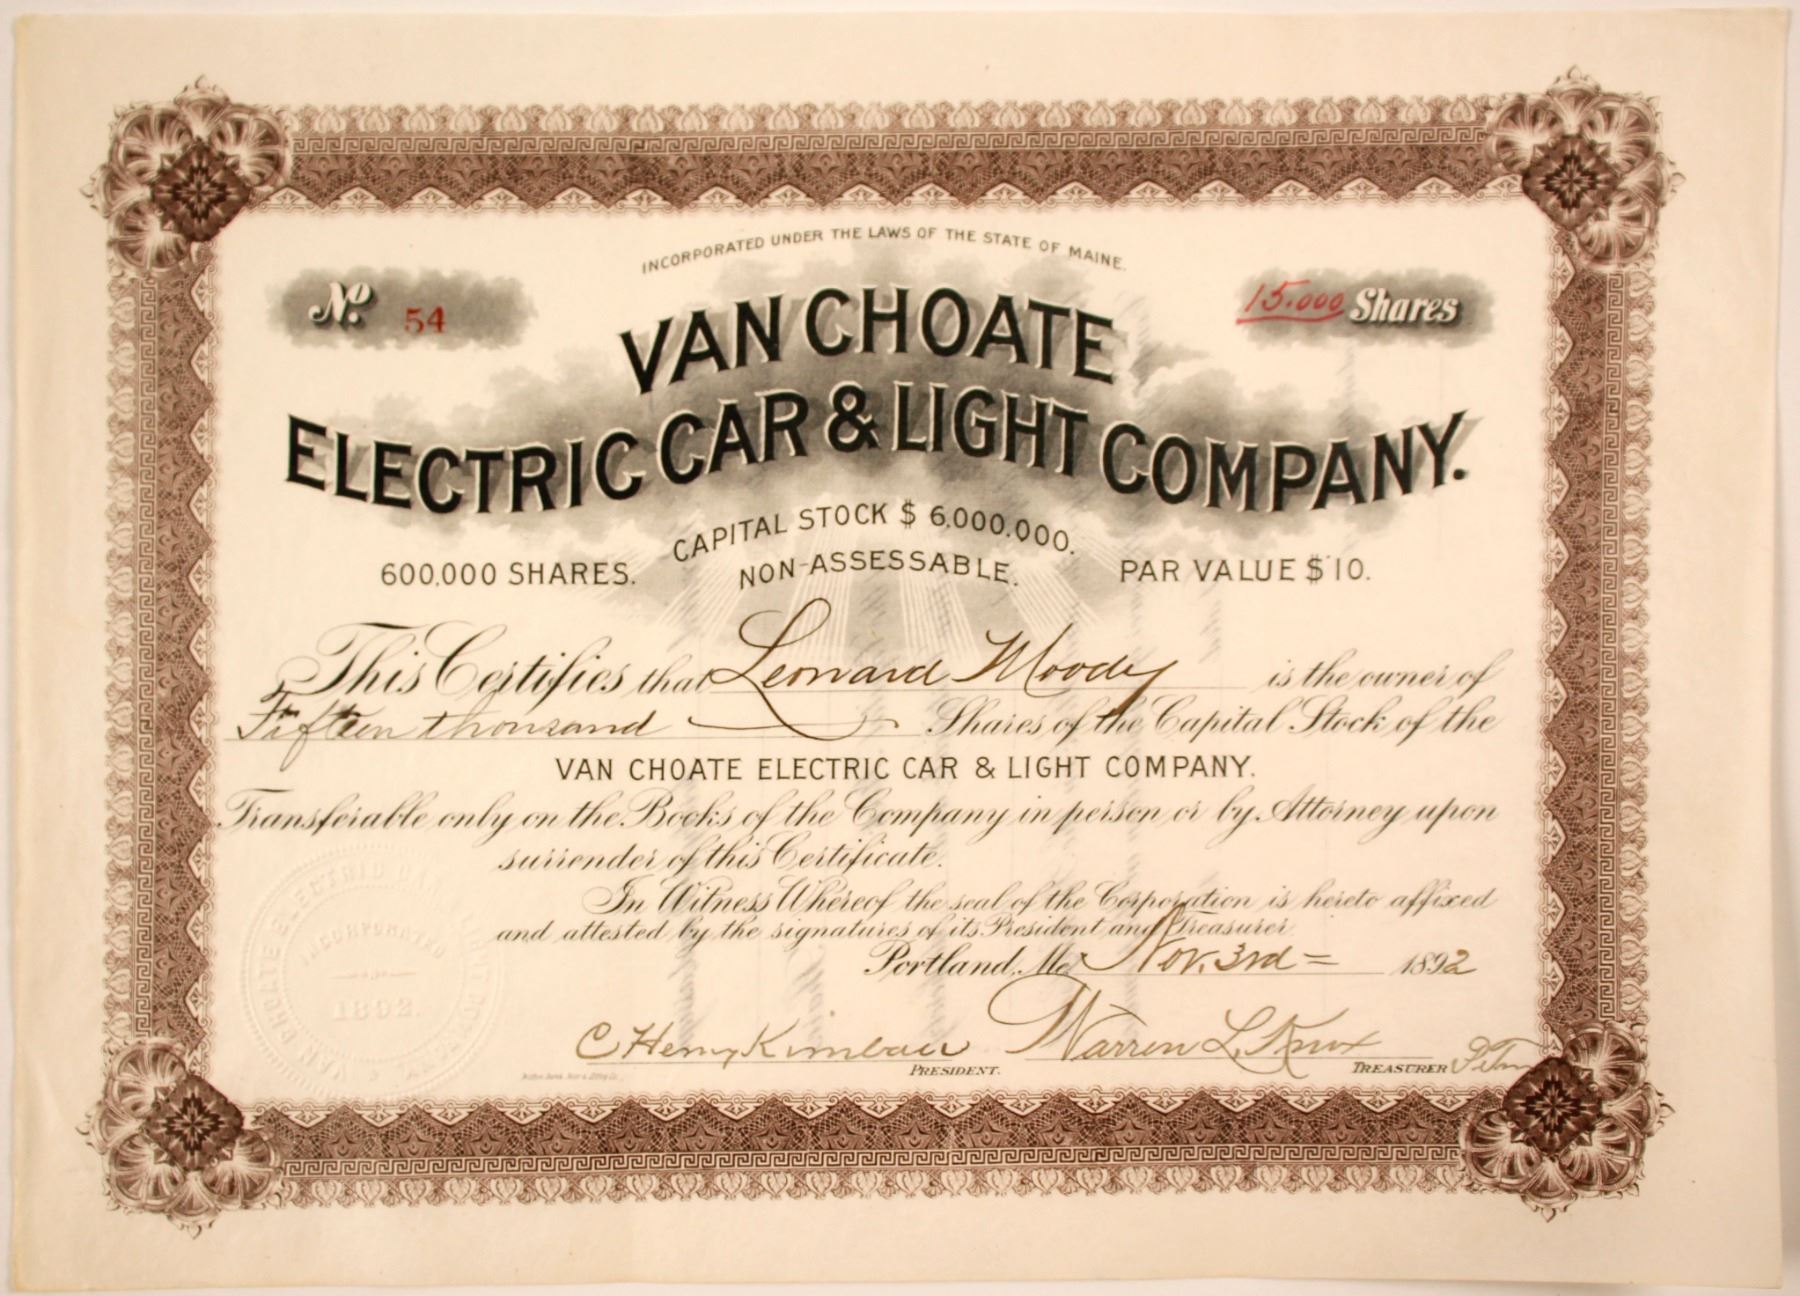 INCORPORATED UNDER THE LAWS OF THE STATE OF MAINE.
No. 54
15.000 Shares
VAN CHOATE
ELECTRIC CAR & LIGHT COMPANY.
CAPITAL STOCK $ 6,000,000.
600,000 SHARES. NON-ASSESSABLE. PAR VALUE $10.
This Certifies that Leonard Moody is the owner of
Fifteen thousand Shares of the Capital Stock of the
VAN CHOATE ELECTRIC CAR & LIGHT COMPANY.
Transferable only on the Books of the Company in person or by Attorney upon
surrender of this Certificate.
In Witness Whereof the seal of the Corporation is hereto affixed
and attested by the signatures of its President and Treasurer
Portland, Me. Nov. 3rd = 1892
C Henry Kimball Warren L. Knox
PRESIDENT. TREASURER
VAN CHOATE ELECTRIC CAR & LIGHT COMPANY
INCORPORATED
1892.